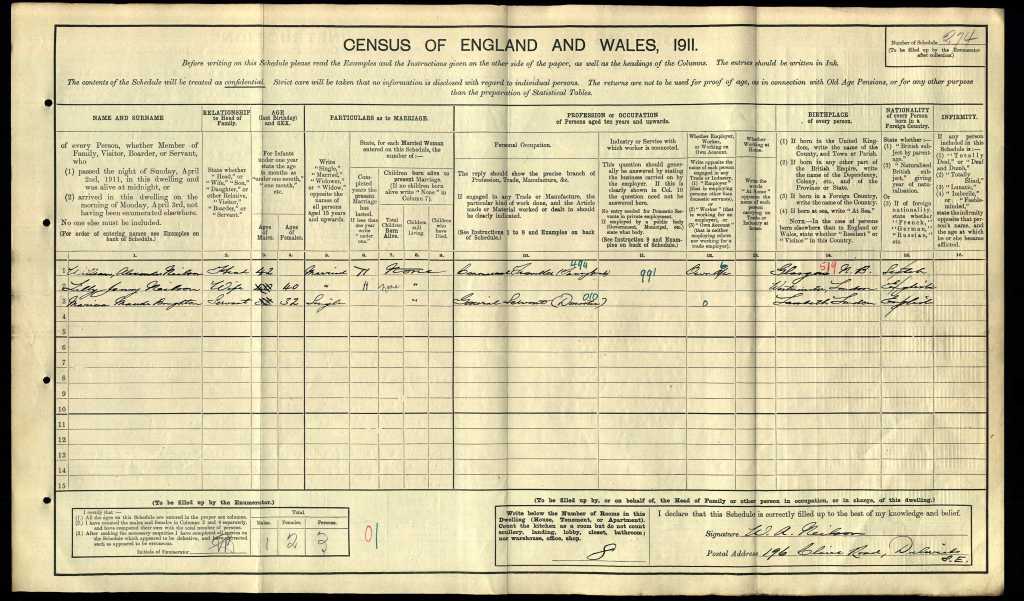 Number of Schedule 274
(To be filled up by the Enumerator after collection.)
CENSUS OF ENGLAND AND WALES, 1911.
Before writing on this Schedule please read the Examples and the Instructions given on the other side of the paper, as well as the headings of the Columns. The entries should be written in Ink.
The contents of the Schedule will be treated as confidential. Strict care will be taken that no information is disclosed with regard to individual persons. The returns are not to be used for proof of age, as in connection with Old Age Pensions, or for any other purpose
than the preparation of Statistical Tables.
NAME AND SURNAME
of every Person, whether Member of
Family, Visitor, Boarder, or Servant,
who
(1) passed the night of Sunday, April
2nd, 1911, in this dwelling and
was alive at midnight, or
(2) arrived in this dwelling on the
morning of Monday, April 3rd, not
having been enumerated elsewhere.
No one else must be included.
(For order of entering names see Examples on
back of Schedule.)
RELATIONSHIP
to Head of
Family.
State whether
"Head," or
"Wife," "Son,"
"Daughter," or
other Relative,
"Visitor,"
"Boarder," or
"Servant."
AGE
(last Birthday)
and SEX.
For Infants
under one year
state the age
in months as
"under one month,"
"one month,"
etc.
Ages of Males.
Ages of Females.
PARTICULARS as to MARRIAGE.
Write
"Single,"
"Married,"
"Widower,"
or "Widow,"
opposite the
names of
all persons
aged 15 years
and upwards.
State, for each Married Woman
entered on this Schedule, the
number of:—
Completed
years the
present
Marriage
has
lasted.
If less than
one year
write
"under
one."
Children born alive to
present Marriage.
(If no children born
alive write "None" in
Column 7).
Total Children Born Alive.
Children still Living.
Children who have Died.
PROFESSION or OCCUPATION
of Persons aged ten years and upwards.
Personal Occupation.
The reply should show the precise branch of
Profession, Trade, Manufacture, &c.
If engaged in any Trade or Manufacture, the
particular kind of work done, and the Article
made or Material worked or dealt in should
be clearly indicated.
(See Instructions 1 to 8 and Examples on back
of Schedule.)
Industry or Service with
which worker is connected.
This question should generally
be answered by stating
the business carried on by
the employer. If this is
clearly shown in Col. 10
the question need not be
answered here.
No entry needed for Domestic Servants
in private employment.
If employed by a public body
(Government, Municipal, etc.)
state what body.
(See Instruction 9 and Examples
on back of Schedule.)
Whether Employer,
Worker, or Working
on Own Account.
Whether Working at Home.
BIRTHPLACE
of every person.
(1) If born in the United Kingdom,
write the name of the
County, and Town or Parish.
(2) If born in any other part of
the British Empire, write
the name of the Dependency,
Colony, etc., and of the
Province or State.
(3) If born in a Foreign Country,
write the name of the Country.
(4) If born at sea, write "At Sea."
NOTE.—In the case of persons
born elsewhere than in England or
Wales, state whether "Resident" or
"Visitor" in this Country.
NATIONALITY
of every Person
born in a
Foreign Country.
State whether:—
(1) "British subject by parentage."
(2) "Naturalised British subject,"
giving year of naturalisation.
Or
(3) If of foreign nationality,
state whether
"French,"
"German,"
"Russian,"
etc.
INFIRMITY.
If any person included in this Schedule is:—
(1) "Totally Deaf," or "Deaf and Dumb,"
(2) "Totally Blind,"
(3) "Lunatic,"
(4) "Imbecile," or "Feeble-minded,"
state the infirmity opposite that person's name, and the age at which he or she became afflicted.
1. 2. 3. 4. 5. 6. 7. 8. 9. 10. 11. 12. 13. 14. 15. 16.
1 William Alexander Neilson Head 42 Married 11 None 494 991 Glasgow 519 N.B.
2 Neilson Wife 40 " 11 none " London English
3 Servant 32 Single " General Servant (Domestic) 010 0 Lambeth London English
4
5
6
7
8
9
10
11
12
13
14
15
(To be filled up by the Enumerator.)
I certify that:—
(1) All the ages on this Schedule are entered in the proper sex columns.
(2) I have counted the males and females in Columns 3 and 4 separately,
and have compared their sum with the total number of persons.
(3) After making the necessary enquiries I have completed all entries on
the Schedule which appeared to be defective, and have corrected
such as appeared to be erroneous.
Initials of Enumerator
Total.
Males. Females. Persons.
1 2 3
01
(To be filled up by, or on behalf of, the Head of Family or other person in occupation, or in charge, of this dwelling.)
Write below the Number of Rooms in this
Dwelling (House, Tenement, or Apartment).
Count the kitchen as a room but do not count
scullery, landing, lobby, closet, bathroom;
nor warehouse, office, shop.
8
I declare that this Schedule is correctly filled up to the best of my knowledge and belief.
Signature W. A. Neilson
Postal Address 196 Road, Dulwich
S.E.